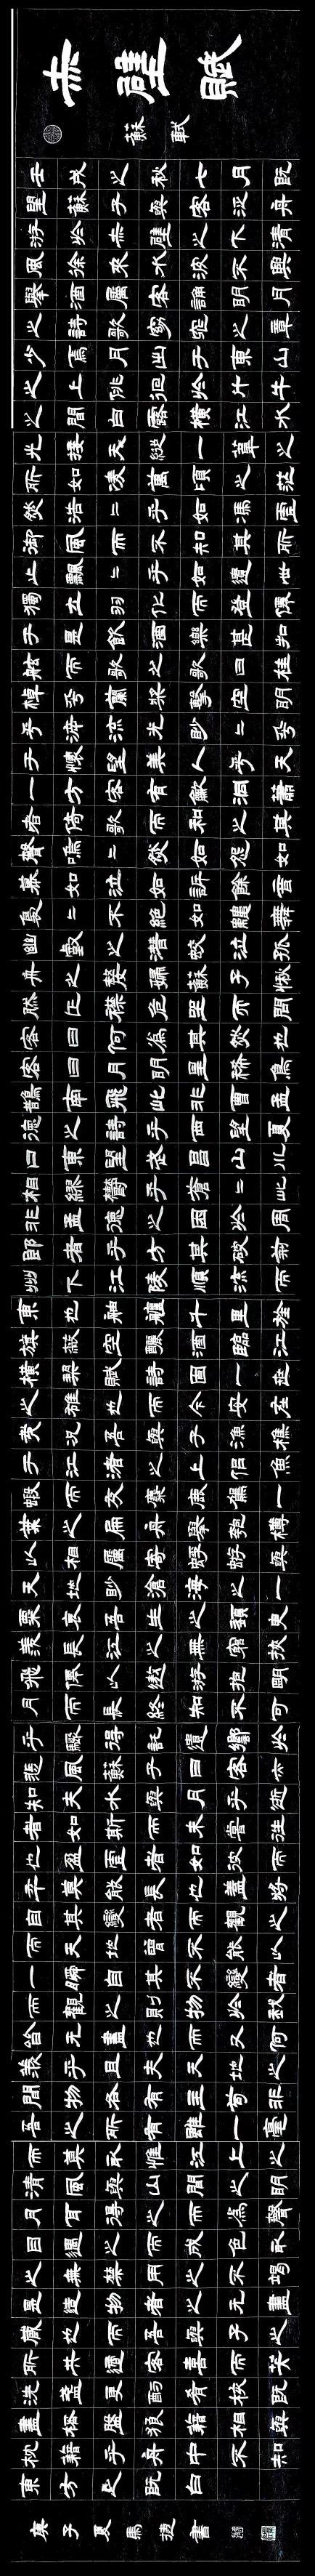 赤壁賦
蘇軾
壬戌之秋七月既
望蘇子與客泛舟
游於赤壁之下清
風徐來水波不興
舉酒屬客誦明月
之詩歌窈窕之章
少焉月出于東山
之上徘徊於斗牛
之間白露橫江水
光接天縱一葦之
所如凌萬頃之茫
然浩二乎如馮虛
御風而不知其所
止飄二乎如遺世
獨立羽化而登僊
于是飲酒樂甚扣
舷而歌之歌曰桂
棹兮蘭槳擊空明
兮泝流光眇二兮
予懷望美人兮天
一方客有吹洞簫
者倚歌而和之其
聲嗚二然如怨如
慕如泣如訴餘音
裊二不絕如縷舞
幽壑之潛蛟泣孤
舟之嫠婦蘇子愀
然正襟危坐而問
客曰何為其然也
客曰月明星稀烏
鵲南飛此非曹孟
德之詩乎西望夏
口東望武昌山川
相繆鬱乎蒼二此
非孟德之困於周
郎者乎方其破荊
州下江陵順流而
東也舳艫千里旌
旗蔽空釃酒臨江
橫槊賦詩固一世
之雄也而今安在
哉況吾與子漁樵
于江渚之上侶魚
蝦而友麋鹿駕一
葉之扁舟舉匏樽
以相屬寄蜉蝣與
天地眇滄海之一
粟哀吾生之須臾
羨長江之無窮挾
飛僊以遨游抱明
月而長終知不可
乎驟得託遺響於
悲風蘇子曰客亦
知夫水與月乎逝
者如斯而未嘗往
也盈虛者如彼而
卒莫消長也蓋將
自其變者而觀之
而天地曾不能以
一瞬自其不變者
而觀之則物於我
皆无盡也而又何
羨乎且夫天地之
間物各有主苟非
吾之所有雖一毫
而莫取惟江上之
清風與山間之明
月耳得之而為聲
目遇之而成色取
之無禁用之不竭
是造物者之无盡
藏也而吾與子之
所共適客喜而笑
洗盞更酌肴核既
盡杯盤狼藉相與
枕藉乎舟中不知
東方之既白
庚子夏馬捷書